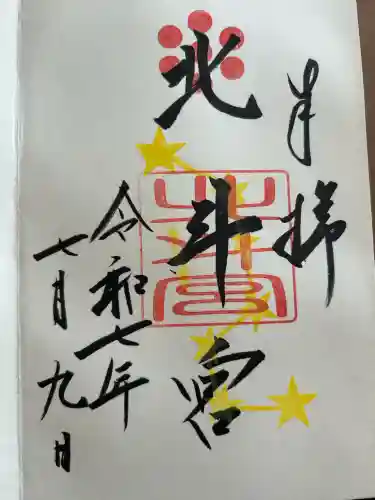 奉拝
北斗宮
北斗宮
令和七年
七月九日